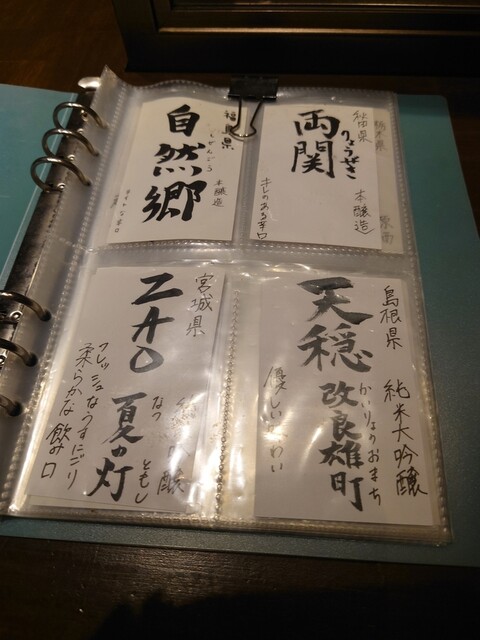 福島県
自然郷
しぜんごう
本醸造
両関
りょうぜき
本醸造
キレのある辛口
宮城県
ZAO
夏の灯
なつ
ともし
フレッシュなうすにごり
柔らかな飲み口
島根県
天穏
改良雄町
かいりょうおまち
純米大吟醸
優しい味わい